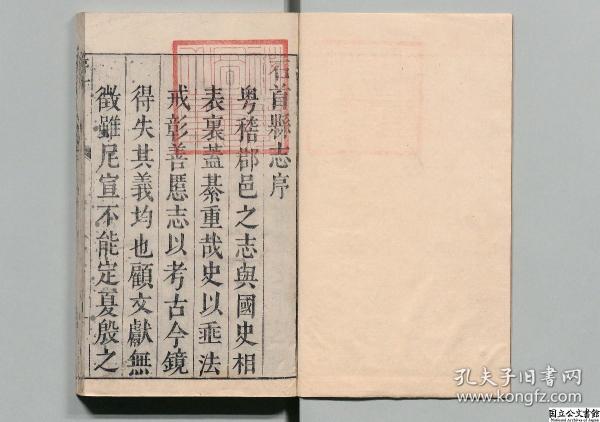 石首縣志序
粤稽郡邑之志與國史相
表裏蓋綦重哉史以垂法
戒彰善慝志以考古今鏡
得失其義均也顧文獻無
徵雖尼宣不能定夏殷之
孔夫子旧书网
www.kongfz.com
国立公文書館
National Archives of Japan